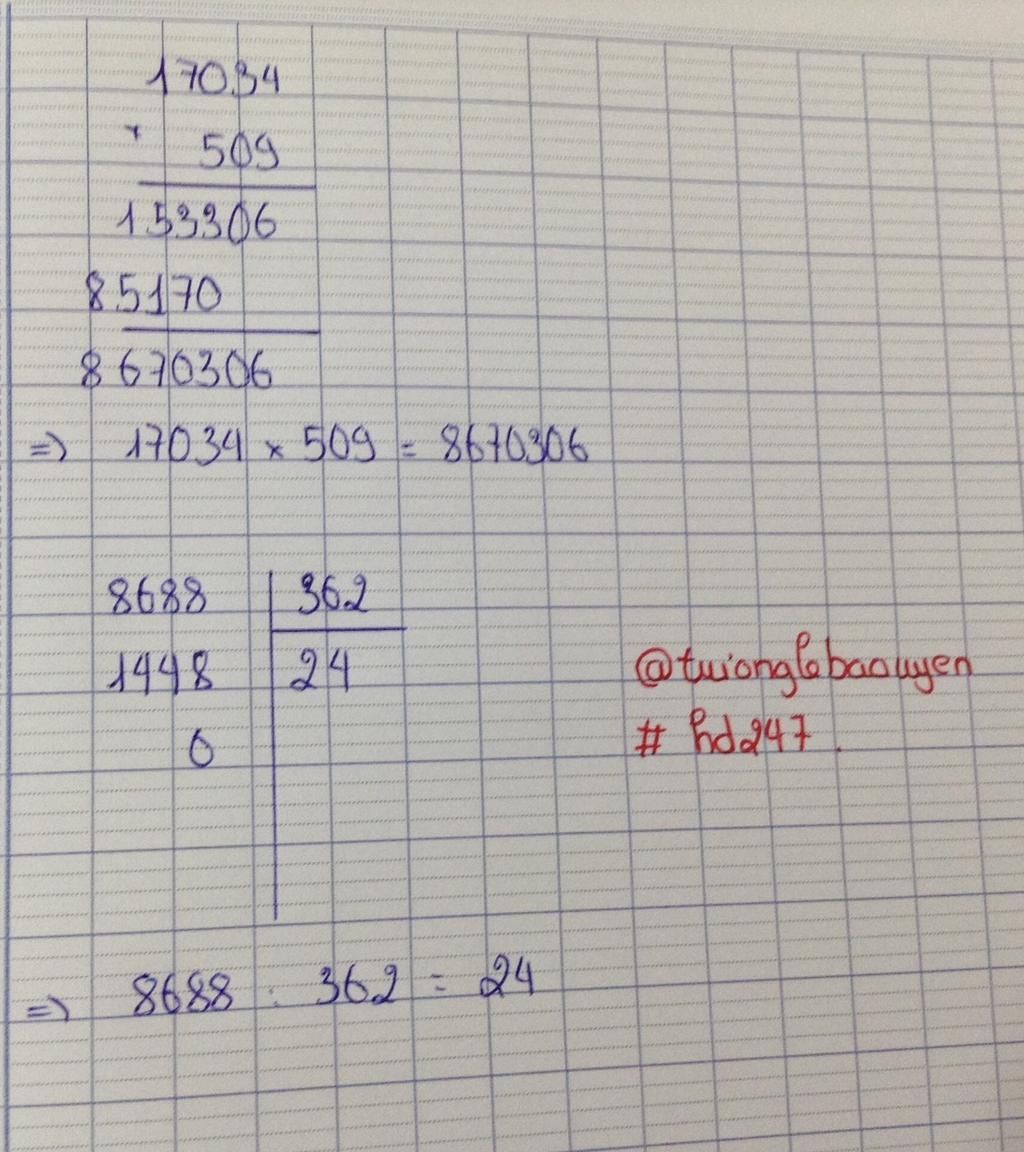 17034
× 509
153306
85170
8670306
=> 17034 × 509 = 8670306
8688 | 362
1448 | 24
0
@tuionglebaouyen
# hd247.
=> 8688 : 362 = 24